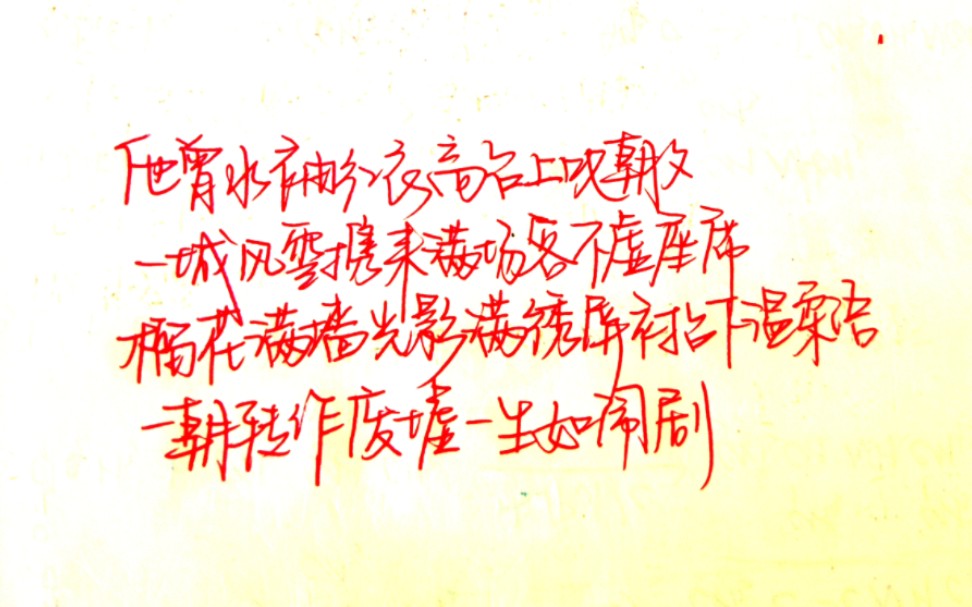 他曾水袖衣高台上叹朝夕
一城风雪携来满场客不虚座席
榴花满墙光影满绣屏衬台下温柔语
一朝转作废墟一生如闹剧